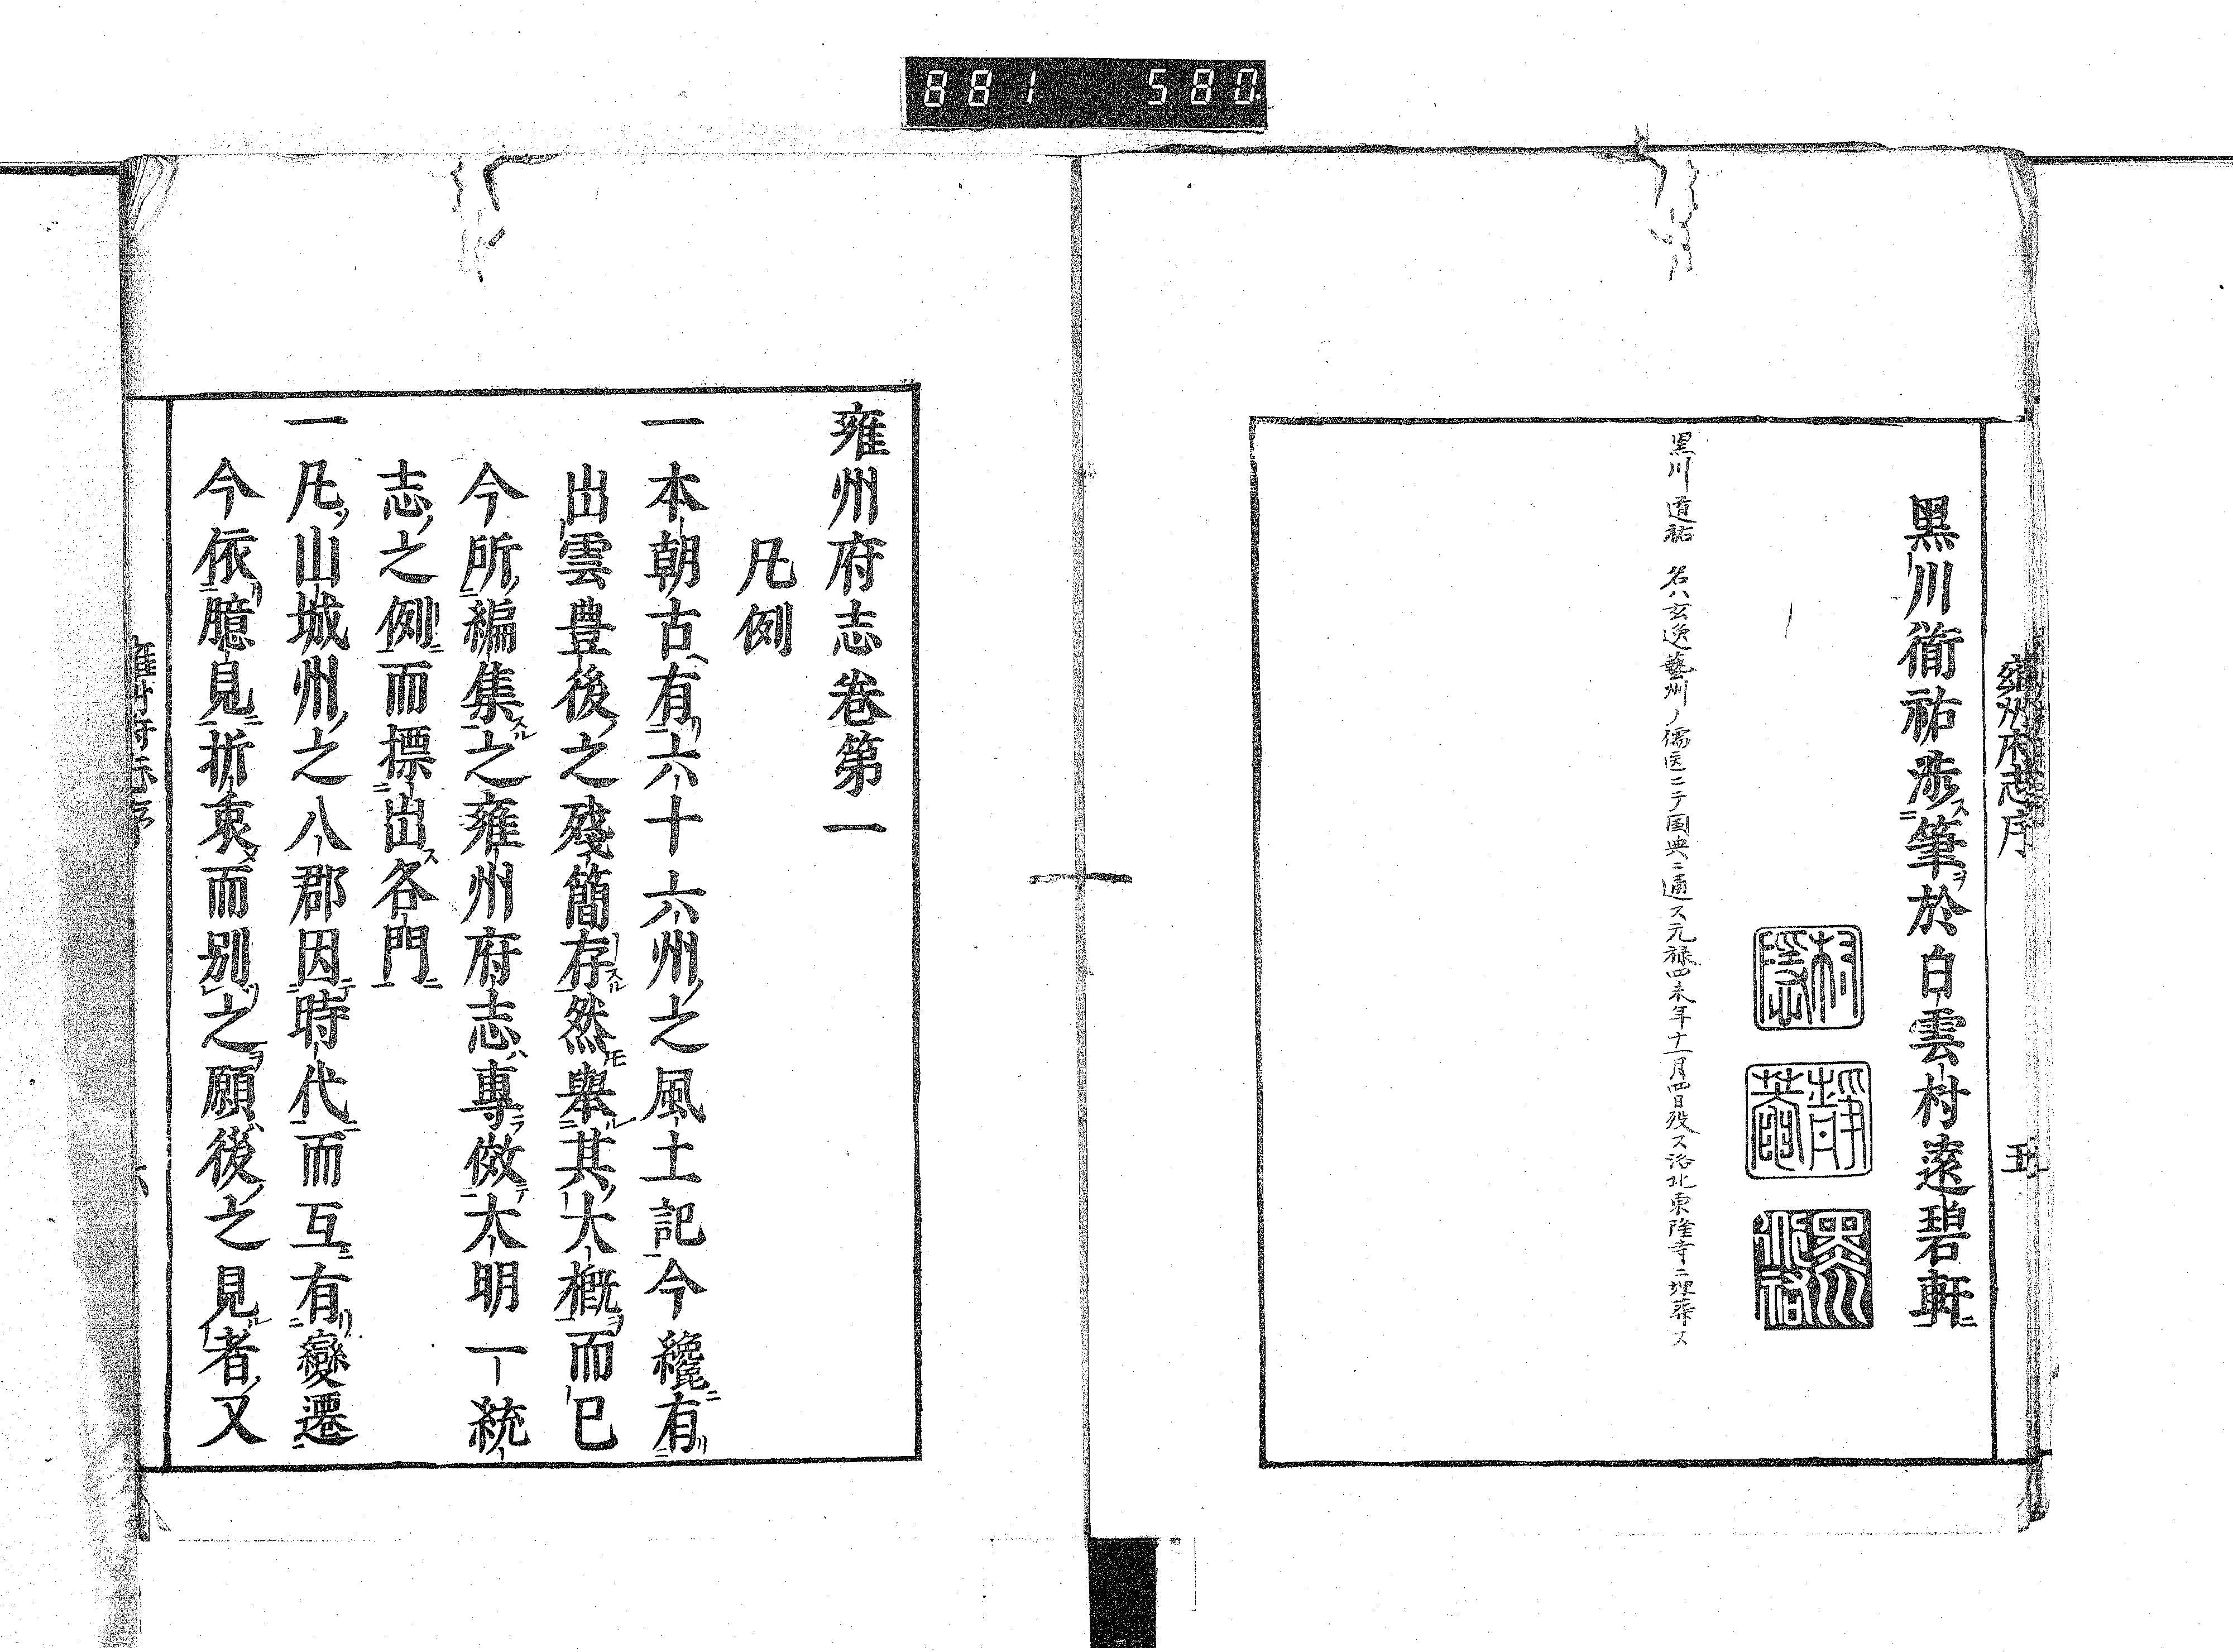 881 580
雍州府志序
五
黒川衜祐染筆於白雲村遠碧軒
村隠
靜菴
黒川道祐 名ハ玄逸藝州ノ儒医ニテ国典ニ通ス元禄四未年十一月四日歿ス洛北東隆寺ニ埋葬ス
雍州府志巻第一
凡例
一本朝古有六十六州之風土記今纔有
出雲豊後之殘簡存然舉其大槪而已
今所編集之雍州府志專傚大明一統
志之例而標出各門
一凡山城州之八郡因時代而互有變遷
今依臆見折衷而別之願後之見者又